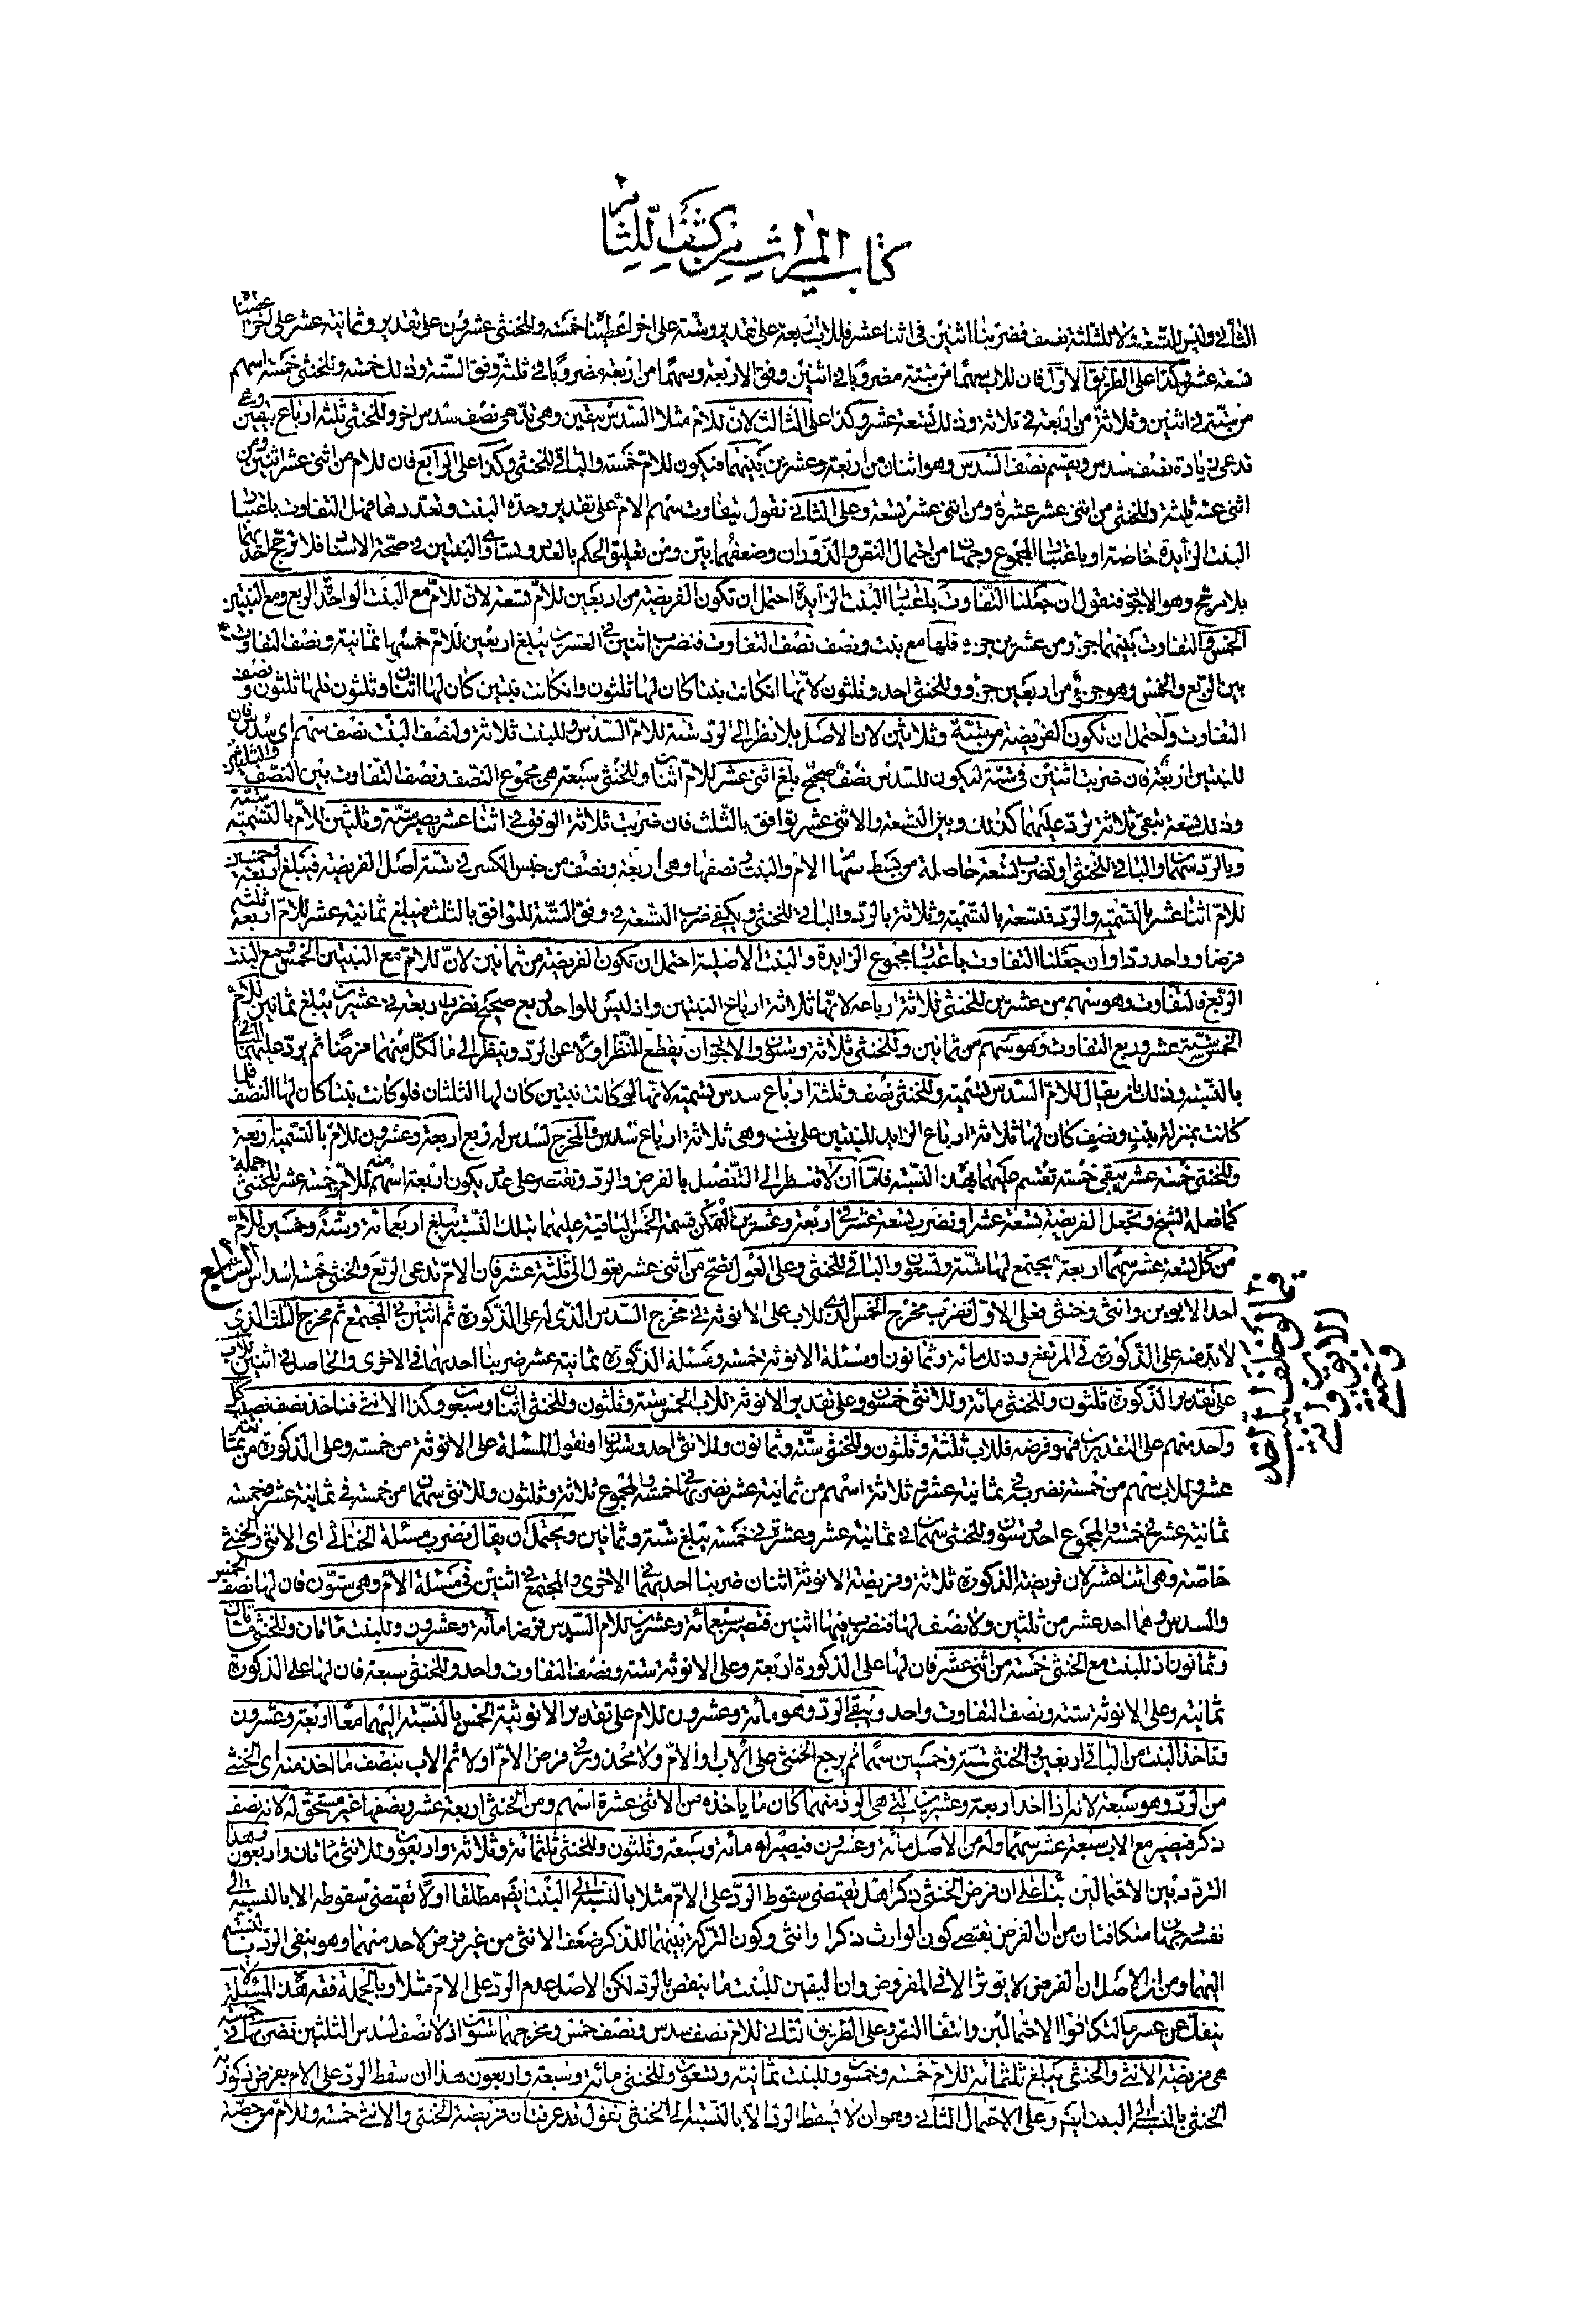 كتاب الميراث من كشف اللثام
الثاني وليس للتسعة ولا للثلثة نصف فضربنا اثنين في اثنا عشر فللاب اربعة على تقدير وستة على اخر اعطيناه خمسة وللخنثى عشرون على تقدير وثمانية عشر على اخر
تسعة عشر وكذا على الطريق الاول فان للاب سهما من ستة مضروبا في اثنين وفق الاربعة وسهما من اربعة مضروبا في ثلثة وفق الستة وذلك خمسة وللخنثى خمسة اسهم
من ستة في اثنين وثلاثة من اربعة في ثلاثة وذلك تسعة عشر وكذا على الثالث لان للام مثلا السدس بيقين وهي تدعي نصف سدس اخر وللخنثى ثلثة ارباع بيقين
تدعي زيادة نصف سدس ويقسم نصف السدس وهو اثنان من اربعة وعشرين بينهما فيكون للام خمسة والباقي للخنثى وكذا على الرابع فان للام من اثني عشر اثنين ومن
اثني عشر ثلثة وللخنثى من اثني عشر عشرة ومن اثني عشر تسعة وعلى الثاني نقول يتفاوت سهم الام على تقدير وحدة البنت وتعددها فهل التفاوت باعتبار
البنت الزايدة خاصة او باعتبار المجموع وجهان من احتمال النص والذوران وضعفهما بين ومن تعليق الحكم بالعدد وتساوي البنتين في صحة الاستناد فلا ترجح احديهما
بلا مرجح وهو الاجود فنقول ان جعلنا التفاوت باعتبار البنت الزايدة احتمل ان تكون الفريضة من اربعين للام تسعة لان للام مع البنت الواحدة الربع ومع البنتين
الخمس والتفاوت بينهما جزء من عشرين جزء فلها مع بنت ونصف نصف التفاوت فنضرب اثنين في العشرين يبلغ اربعين للام خمسها ثمانية ونصف التفاوت
بين الربع والخمس وهو جزء من اربعين جزء وللخنثى احد وثلثون لانها ان كانت بنتا كان لها ثلثون وان كانت بنتين كان لها اثنان وثلثون فلها ثلثون ونصف
التفاوت واحتمل ان تكون الفريضة من ستة وثلاثين لان الاصل بلا نظر الى الرد ستة للام السدس وللبنت ثلاثة ولنصف البنت نصف سهم اي سدس فان
للبنتين اربعة فان ضربت اثنين في ستة ليكون للسدس نصف صحيح بلغ اثني عشر للام اثنان وللخنثى سبعة هي مجموع النصف ونصف التفاوت بين النصف والثلثين
وذلك تسعة تبقى ثلاثة ترد عليهما كذلك وبين التسعة والاثني عشر توافق بالثلث فان ضربت ثلاثة الوفق في اثنا عشر يصير ستة وثلثين للام بالتسمية ستة
وبالرد سهمان والباقي للخنثى او نضرب تسعة حاصلة من بسط سهام الام والبنت ونصفها وهي اربعة ونصف من جنس الكسر في ستة اصل الفريضة فيبلغ اربعة وخمسين
للام اثنا عشر بالتسمية والرد فتسعة بالتسمية وثلاثة بالرد والباقي للخنثى ويكفي ضرب التسعة في وفق الستة للتوافق بالثلث فيبلغ ثمانية عشر للام اربعة ثلثة
فرضا وواحد ردا وان جعلنا التفاوت باعتبار مجموع الزايدة والبنت الاصلية احتمل ان تكون الفريضة من ثمانين لان للام مع البنتين الخمس ومع البنت
الربع فالتفاوت وهو سهم من عشرين للخنثى ثلاثة ارباعه لانها ثلاثة ارباع البنتين واذ ليس للواحد ربع صحيح نضرب اربعة في عشرين يبلغ ثمانين للام
الخمس ستة عشر وربع التفاوت وهو سهم من ثمانين وللخنثى ثلاثة وستون والاجود ان يقطع النظر اولا عن الرد وينظر الى ما لكل منهما فرضا ثم يرد عليهما الباقي
بالنسبة وذلك بان يقال للام السدس تسمية وللخنثى نصف وثلثة ارباع سدس تسمية لانها لو كانت بنتين كان لها الثلثان فلو كانت بنتا كان لها النصف فلما
كانت بمنزلة بنت ونصف كان لها ثلاثة ارباع الزايد للبنتين على بنت وهي ثلاثة ارباع سدس والمخرج لسدس له ربع اربعة وعشرون للام بالتسمية اربعة
وللخنثى خمسة عشر يبقى خمسة تقسم عليهما بهذه النسبة فلنا ان لا ننظر الى التفضيل بالفرض والرد ونقتصر على عدد يكون اربعة اسهم منه للام وخمسة عشر للخنثى جملة
كما فعله الشيخ ونجعل الفريضة تسعة عشر او نضرب تسعة عشر في اربعة وعشرين ليمكن قسمة الخمس الباقية عليهما بتلك النسبة تبلغ اربعمائة وستة وخمسين للام
من كل تسعة عشر سهما اربعة يجتمع لها ستة وتسعون والباقي للخنثى وعلى العول تصح من اثني عشر يعول الى ثلثة عشر فان الام تدعي الربع والخنثى خمسة اسداس السابع
احد الابوين وانثى وخنثى فعلى الاول نضرب مخرج الخمس الذي للاب على الانوثة في مخرج السدس الذي له على الذكورة ثم اثنين في المجتمع ثم مخرج الثلث الذي
لا بد منه على الذكورة في المرتفع وذلك مائة وثمانون او مسئلة الانوثة خمسة ومسئلة الذكورة ثمانية عشر ضربنا احديهما في الاخرى والحاصل في اثنين للاب
على تقدير الذكورة ثلثون وللخنثى مائة وللانثى خمسون وعلى تقدير الانوثة للاب الخمس ستة وثلثون وللخنثى اثنان وسبعون وكذا الانثى فناخذ نصف نصيب كل
واحد منهم على التقديرين فهو فرضه فللاب ثلثة وثلثون وللخنثى ستة وثمانون وللانثى احد وستون او نقول المسئلة على الانوثة من خمسة وعلى الذكورة من ثمانية
عشر وللاب سهم من خمسة نضربه في ثمانية عشر وثلاثة اسهم من ثمانية عشر نضربها في خمسة والمجموع ثلاثة وثلثون وللانثى سهمان من خمسة في ثمانية عشر وخمسة من
ثمانية عشر في خمسة والمجموع احد وستون وللخنثى سهمان في ثمانية عشر وعشرة في خمسة يبلغ ستة وثمانين ويحتمل ان يقال نضرب مسئلة الخناثى اي الانثى والخنثى
خاصة وهي اثنا عشر لان فريضة الذكورة ثلاثة وفريضة الانوثة اثنان ضربنا احديهما في الاخرى والمجتمع في اثنين في مسئلة الام وهي ستون فان لها نصف الخمس
والسدس وهما احد عشر من ثلثين ولا نصف لها فنضرب فيها اثنين فتصير سبعمائة وعشرين للام السدس فرضا مائة وعشرون وللبنت مائتان وللخنثى مائتان
وثمانون اذ للبنت مع الخنثى خمسة من اثني عشر فان لها على الذكورة اربعة وعلى الانوثة ستة ونصف التفاوت واحد وللخنثى سبعة فان لها على الذكورة
ثمانية وعلى الانوثة ستة ونصف التفاوت واحد ويبقى الرد وهو مائة وعشرون للام على تقدير الانوثية الخمس بالنسبة اليهما معا اربعة وعشرون
وتاخذ البنت من الباقي اربعين والخنثى ستة وخمسين سهما ثم يرجع الخنثى على الاب او الام ولا محذور في فرض الام اولا ثم الاب بنصف ما اخذ منه اي الخنثى
من الرد وهو سبعة لانه اذا اخذ اربعة وعشرين التي هي الرد منهما كان ما ياخذه من الانثى عشرة اسهم ومن الخنثى اربعة عشر ونصفها غير مستحق له لانه نصف
ذكر فيصير مع الاب سبعة عشر سهما وله من الاصل مائة وعشرون فيصير له مائة وسبعة وثلثون وللخنثى ثلثمائة وثلاثة واربعون وللانثى مائتان واربعون وهذا
التردد بين الاحتمالين بناء على ان فرض الخنثى ذكرا هل يقتضي سقوط الرد على الام مثلا بالنسبة الى البنت ايضا مطلقا او لا يقتضي سقوطه الا بالنسبة الى
نفسه وجهان متكافئان من ان الفرض يقتضي كون الوارث ذكرا وانثى وكون التركة بينهما للذكر ضعف الانثى من غير فرض لاحد منهما وهو ينفي الرد بالنسبة
اليهما ومن ان الاصل ان الفرض لا يوثر الا في المفروض وان اليقين للبنت ما ينقص بالرد لكن الاصل عدم الرد على الام مثلا وبالجملة ففقه هذه المسئلة لا
ينفك عن عسر ما لتكافؤ الاحتمالين وانتفاء النص وعلى الطريق الثاني للام نصف سدس ونصف خمس ومخرجهما ستون اذ لا نصف لسدس الثلثين نضربها في خمسة
هي فريضة الانثى والخنثى يبلغ ثلثمائة للام خمسة وخمسون وللبنت ثمانية وتسعون وللخنثى مائة وسبعة واربعون هذا ان سقط الرد على الام بفرض ذكورية
الخنثى بالنسبة الى البنت ايضا وعلى الاحتمال الثاني وهو ان لا يسقط الرد الا بالنسبة الى الخنثى نقول قد عرفت ان فريضة الخنثى والانثى خمسة وللام من حصة
احد
الابوين
وانثى
وخنثى